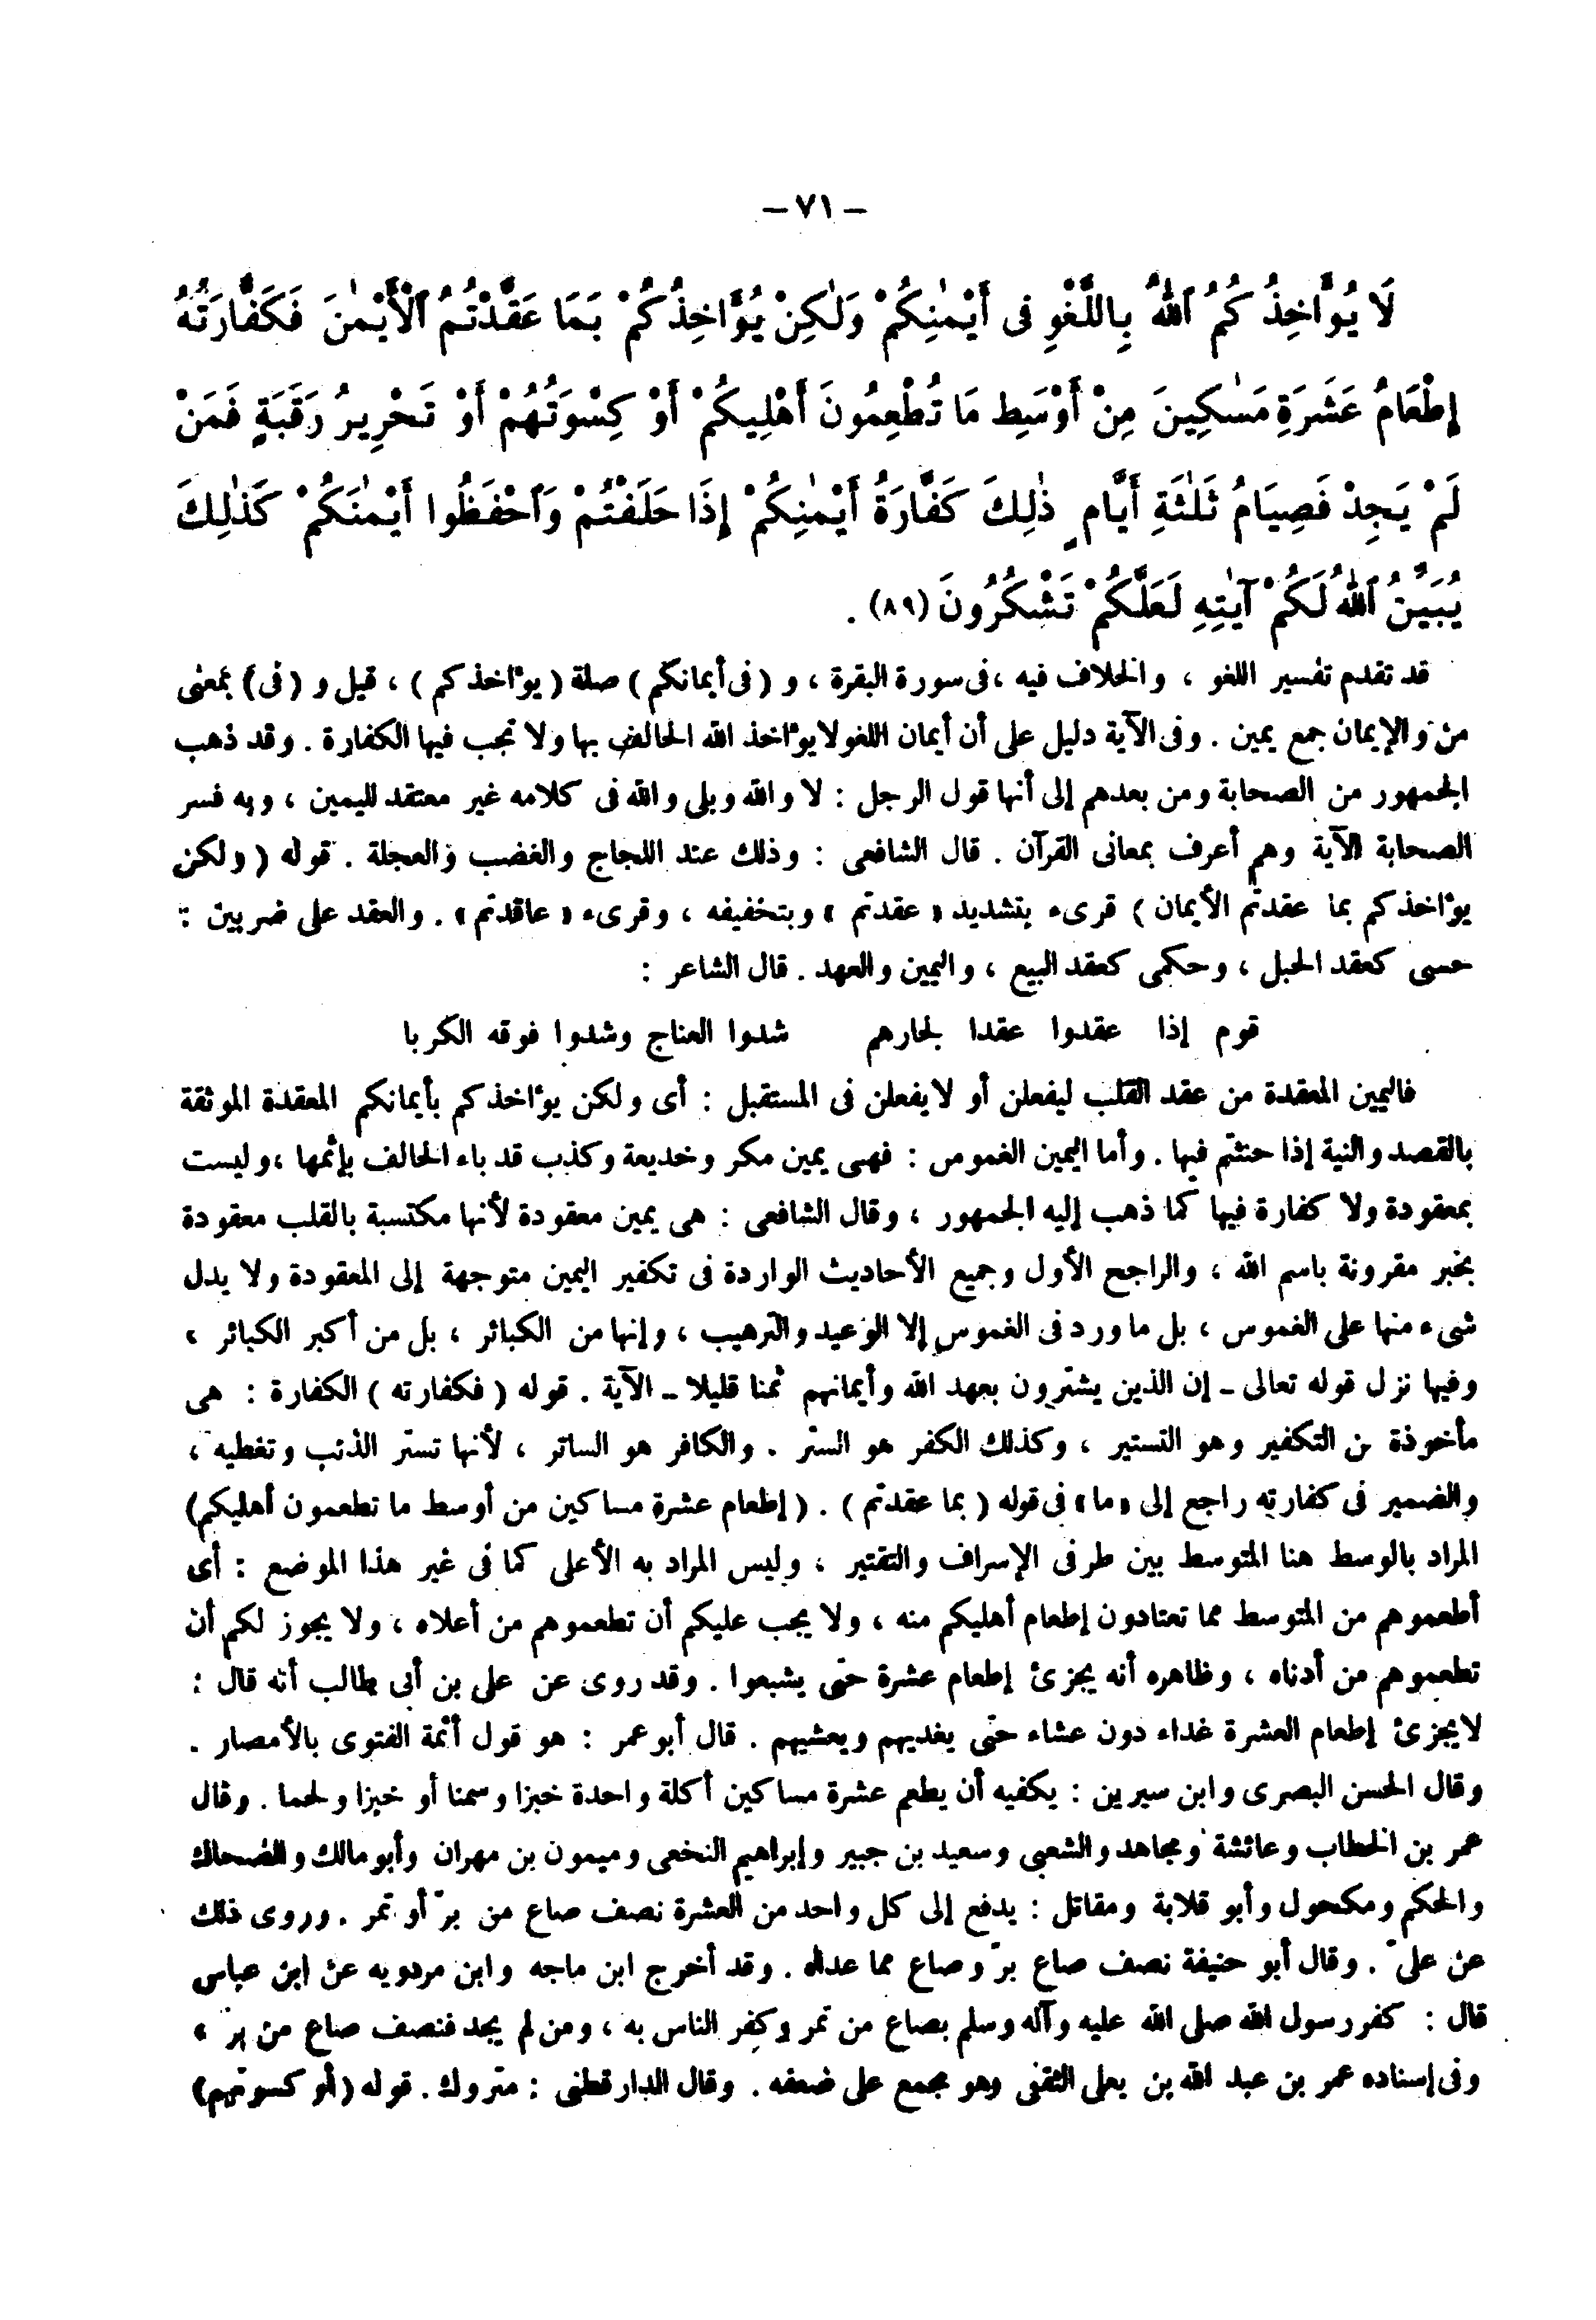 – ٧١ –
لَا يُؤَاخِذُكُمُ ٱللَّهُ بِاللَّغْوِ فِى أَيْمٰنِكُمْ وَلٰكِنْ يُؤَاخِذُكُمْ بِمَا عَقَّدْتُمُ ٱلْأَيْمٰنَ فَكَفَّارَتُهُ
إِطْعَامُ عَشَرَةِ مَسٰكِينَ مِنْ أَوْسَطِ مَا تُطْعِمُونَ أَهْلِيكُمْ أَوْ كِسْوَتُهُمْ أَوْ تَحْرِيرُ رَقَبَةٍ فَمَنْ
لَمْ يَجِدْ فَصِيَامُ ثَلٰثَةِ أَيَّامٍ ذٰلِكَ كَفَّارَةُ أَيْمٰنِكُمْ إِذَا حَلَفْتُمْ وَٱحْفَظُوا أَيْمٰنَكُمْ كَذٰلِكَ
يُبَيِّنُ ٱللَّهُ لَكُمْ آيٰتِهِ لَعَلَّكُمْ تَشْكُرُونَ (٨٩) .
قد تقدم تفسير اللغو ، والخلاف فيه ، فى سورة البقرة ، و (فى أيمانكم) صلة ( يؤاخذكم ) ، قيل و (فى) بمعنى
من والإيمان جمع يمين . وفى الآية دليل على أن أيمان اللغو لايؤاخذ الله الحالف بها ولا تجب فيها الكفارة . وقد ذهب
الجمهور من الصحابة ومن بعدهم إلى أنها قول الرجل : لا والله وبلى والله فى كلامه غير معتقد لليمين ، وبه فسر
الصحابة الآية وهم أعرف بمعانى القرآن . قال الشافعى : وذلك عند اللجاج والغضب والعجلة . قوله ( ولكن
يؤاخذكم بما عقدتم الأيمان ) قرىء بتشديد « عقدتم » وبتخفيفه ، وقرىء « عاقدتم » . والعقد على ضربين :
حسى كعقد الحبل ، وحكمى كعقد البيع ، واليمين والعهد . قال الشاعر :
قوم إذا عقدوا عقدا لجارهم شدوا العناج وشدوا فوقه الكربا
فاليمين المعقدة من عقد القلب ليفعلن أو لايفعلن فى المستقبل : أى ولكن يؤاخذكم بأيمانكم المعقدة الموثقة
بالقصد والنية إذا حنثتم فيها . وأما اليمين الغموس : فهى يمين مكر وخديعة وكذب قد باء الحالف بإثمها ، وليست
بمعقودة ولا كفارة فيها كما ذهب إليه الجمهور ، وقال الشافعى : هى يمين معقودة لأنها مكتسبة بالقلب معقودة
بخبر مقرونة باسم الله ، والراجح الأول وجميع الأحاديث الواردة فى تكفير اليمين متوجهة إلى المعقودة ولا يدل
شىء منها على الغموس ، بل ما ورد فى الغموس إلا الوعيد والترهيب ، وإنها من الكبائر ، بل من أكبر الكبائر ،
وفيها نزل قوله تعالى - إن الذين يشترون بعهد الله وأيمانهم ثمنا قليلا - الآية . قوله ( فكفارته ) الكفارة : هى
مأخوذة من التكفير وهو التستير ، وكذلك الكفر هو الستر . والكافر هو الساتر ، لأنها تستر الذنب وتغطيه ،
والضمير فى كفارته راجع إلى «ما» فى قوله ( بما عقدتم ) . ( إطعام عشرة مساكين من أوسط ما تطعمون أهليكم)
المراد بالوسط هنا المتوسط بين طرفى الإسراف والتقتير ، وليس المراد به الأعلى كما فى غير هذا الموضع : أى
أطعموهم من المتوسط مما تعتادون إطعام أهليكم منه ، ولا يجب عليكم أن تطعموهم من أعلاه ، ولا يجوز لكم أن
تطعموهم من أدناه ، وظاهره أنه يجزئ إطعام عشرة حتى يشبعوا . وقد روى عن على بن أبى طالب أنه قال :
لايجزئ إطعام العشرة غداء دون عشاء حتى يغديهم ويعشيهم . قال أبو عمر : هو قول أئمة الفتوى بالأمصار .
وقال الحسن البصرى وابن سيرين : يكفيه أن يطعم عشرة مساكين أكلة واحدة خبزا وسمنا أو خبزا ولحما . وقال
عمر بن الخطاب وعائشة ومجاهد والشعبى وسعيد بن جبير وإبراهيم النخعى وميمون بن مهران وأبو مالك والضحاك
والحكم ومكحول وأبو قلابة ومقاتل : يدفع إلى كل واحد من العشرة نصف صاع من برّ أو تمر . وروى ذلك
عن علىّ . وقال أبو حنيفة نصف صاع برّ وصاع مما عداه . وقد أخرج ابن ماجه وابن مردويه عن ابن عباس
قال : كفر رسول الله صلى الله عليه وآله وسلم بصاع من تمر وكفر الناس به ، ومن لم يجد فنصف صاع من برّ »
وفى إسناده عمر بن عبد الله بن يعلى الثقفى وهو مجمع على ضعفه . وقال الدارقطنى : متروك . قوله (أو كسوتهم)